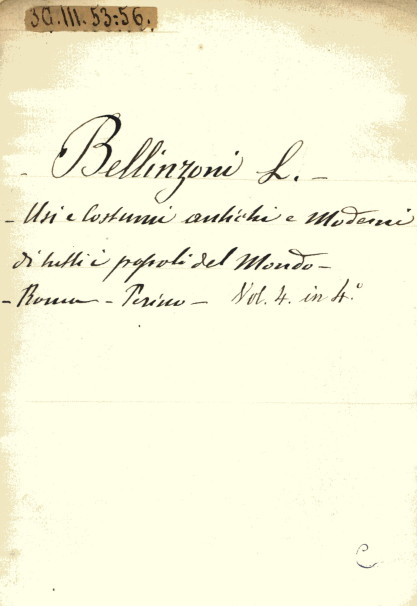 3G.III.53:56.
- Bellinzoni L. -
- Usi e Costumi antichi e Moderni
di tutti i popoli del Mondo -
- Roma - Perino - Vol. 4. in 4.°
C